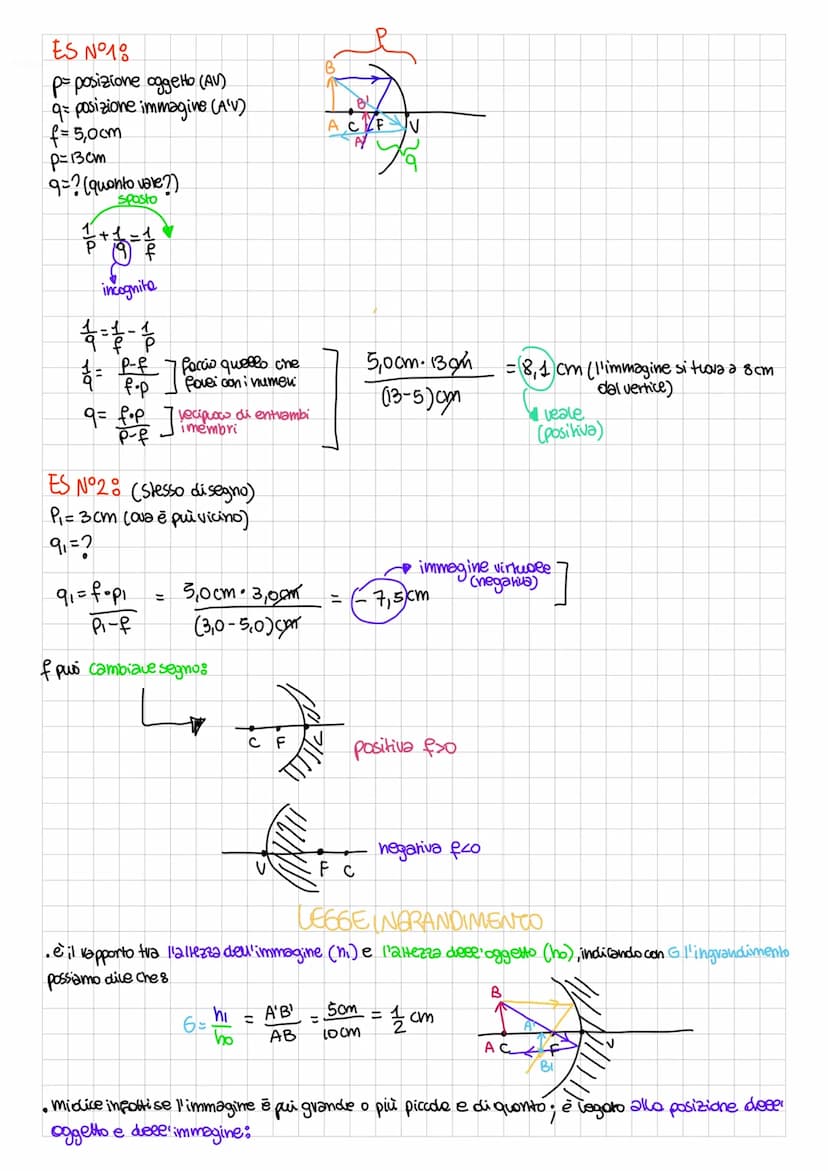 ES N°1:
p= posizione oggetto (AV)
q= posizione immagine (A'V)
f= 5,0cm
p=13cm
q=? (quanto vale?)
P
B
B'
A C F V
A'
q
sposto
1/p + 1/q = 1/f
incognita
1/q = 1/f - 1/p
1/q = p-f / f·p ] faccio quello che farei con i numeri
q= f·p / p-f ] reciproco di entrambi i membri
5,0cm· 13cm / (13-5)cm = 8,1 cm (l'immagine si trova a 8cm dal vertice)
reale (positiva)
ES N°2: (stesso disegno)
P₁= 3cm (ora è più vicino)
q₁=?
q₁= f·p₁ / p₁-f = 5,0cm· 3,0cm / (3,0-5,0)cm = -7,5cm
immagine virtuale (negativa)
f può cambiare segno:
C F V
positiva f>0
V F C
negativa f<0
LEGGE INGRANDIMENTO
. è il rapporto tra l'altezza dell'immagine (hi) e l'altezza dell'oggetto (ho), indicando con G l'ingrandimento
possiamo dire che:
G= hi / ho = A'B' / AB = 5cm / 10cm = 1/2 cm
B
A'
A C F V
B'
. mi dice infatti se l'immagine è più grande o più piccola e di quanto; è legato alla posizione dell'
oggetto e dell'immagine: